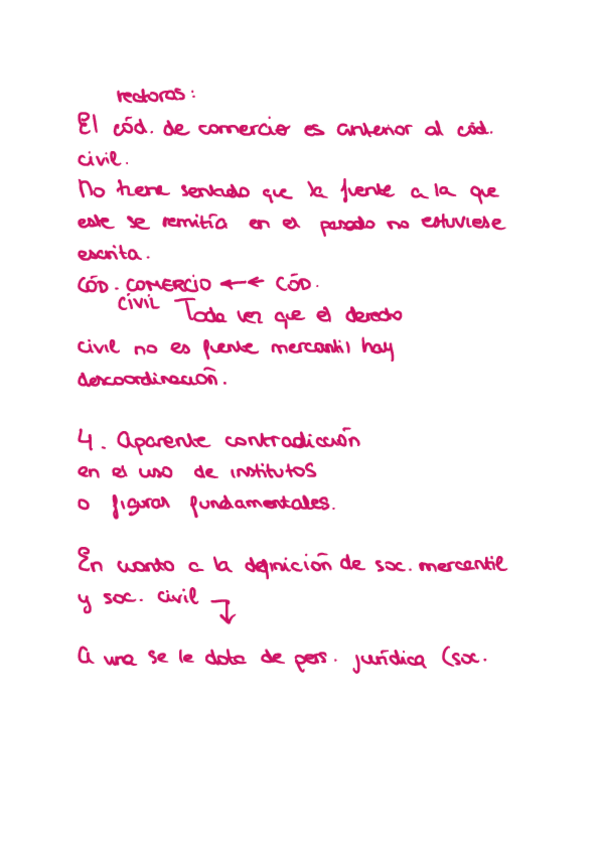 rectoras:
El cód. de comercio es anterior al cód.
civil.
No tiene sentido que la fuente a la que
este se remitía en el pasado no estuviese
escrita.
CÓD. COMERCIO ←← CÓD.
CIVIL Toda vez que el derecho
civil no es fuente mercantil hay
descoordinación.
4. Aparente contradicción
en el uso de institutos
o figuras fundamentales.
En cuanto a la definición de soc. mercantil
y soc. civil ↓
A una se le dota de pers. jurídica (soc.